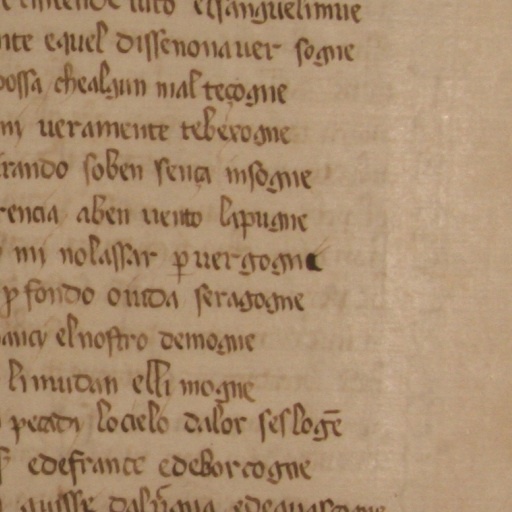 elsanguelimue
nte equel dissenonauer sogne
possa chealgun mal teçogne
ueramente tebexogne
rando soben sença insogne
rencia aben uento lapugne
mi nolassar p uergogne
p fondo ouida seragogne
elnostro demogne
li mudan elli mogne
pecadi locielo dalor seslogē
edefrance edeborcogne